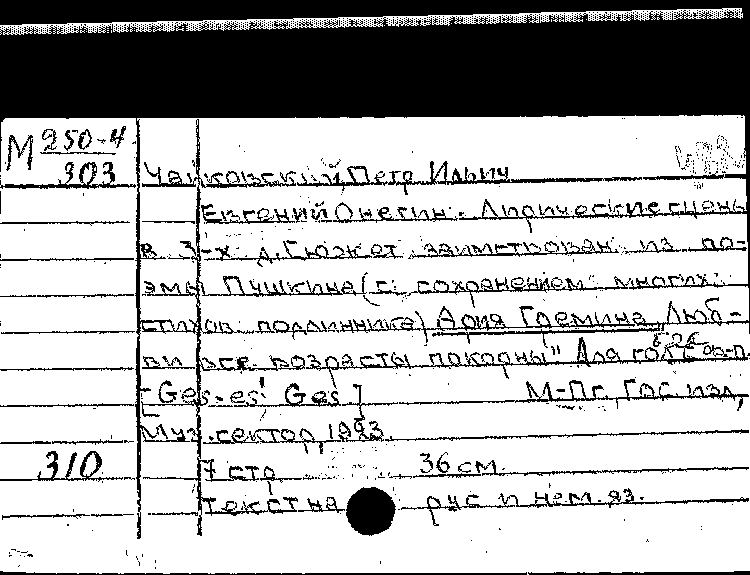 М 250-4
303
Чайковский, Петр Ильич
Евгений Онегин. Лирические сцены
в 3-х д. Сюжет заимствован из по-
эмы Пушкина (с сохранением многих
стихов подлинника) Ария Гремина „Люб-
ви все возрасты покорны" Для гол. с ф-п.
[Ges-es' Ges] М-Пг, Гос. изд,
Муз. сектор, 1923.
310 7 стр 36 см.
Текст на рус и нем. яз.